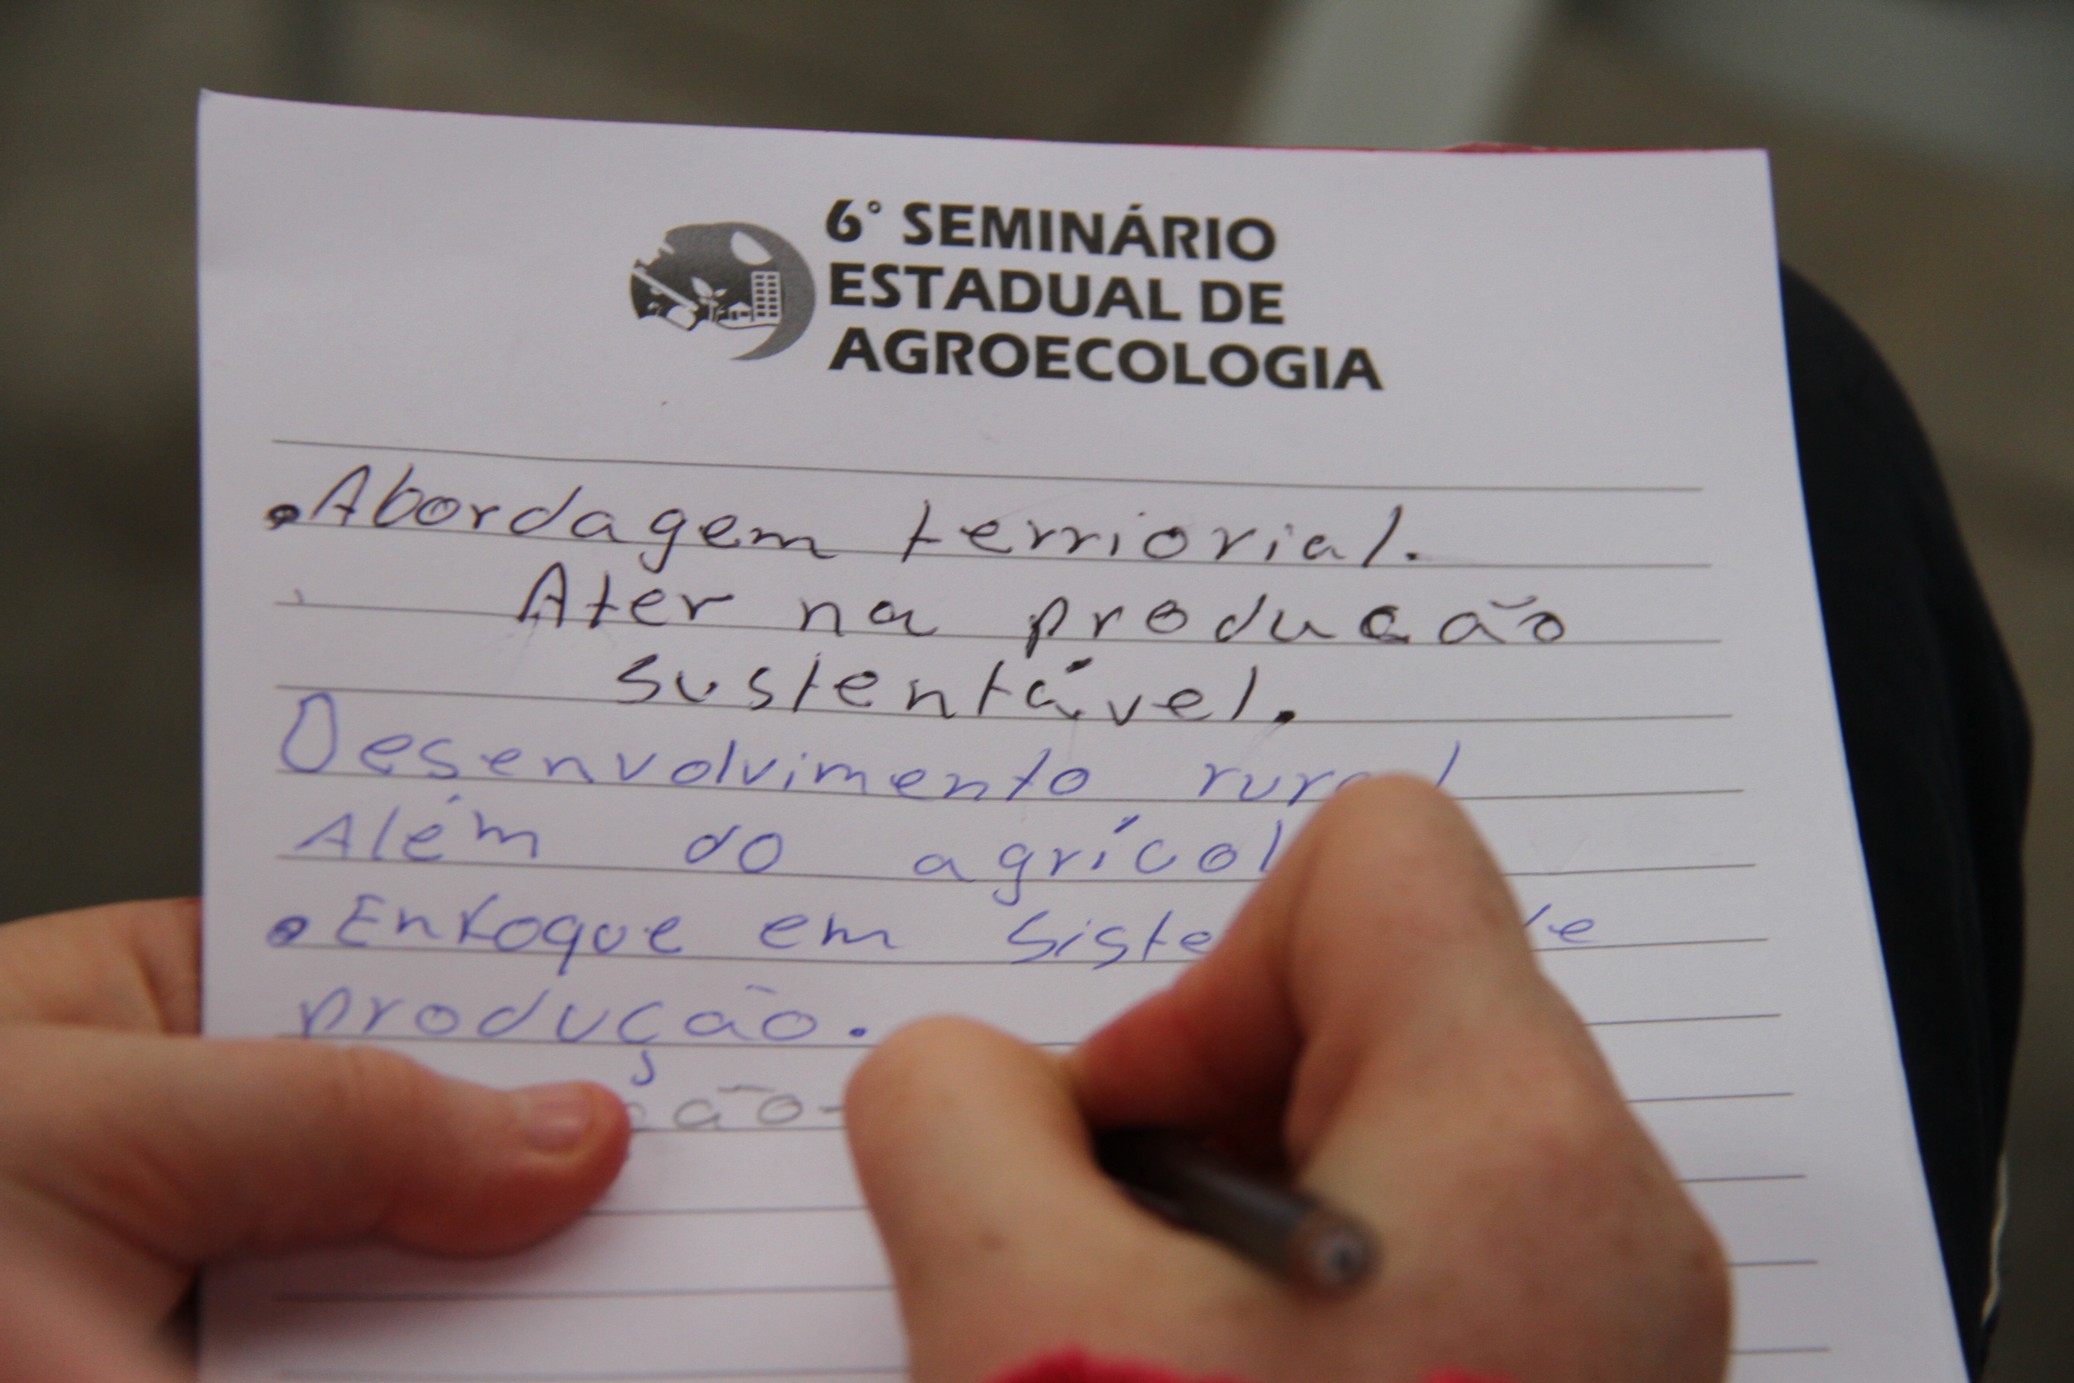 6° SEMINÁRIO
ESTADUAL DE
AGROECOLOGIA
• Abordagem terriorial.
Ater na producão
sustentável.
Desenvolvimento rural
Além do agrícol
• Enfoque em siste de
produção.
ção-